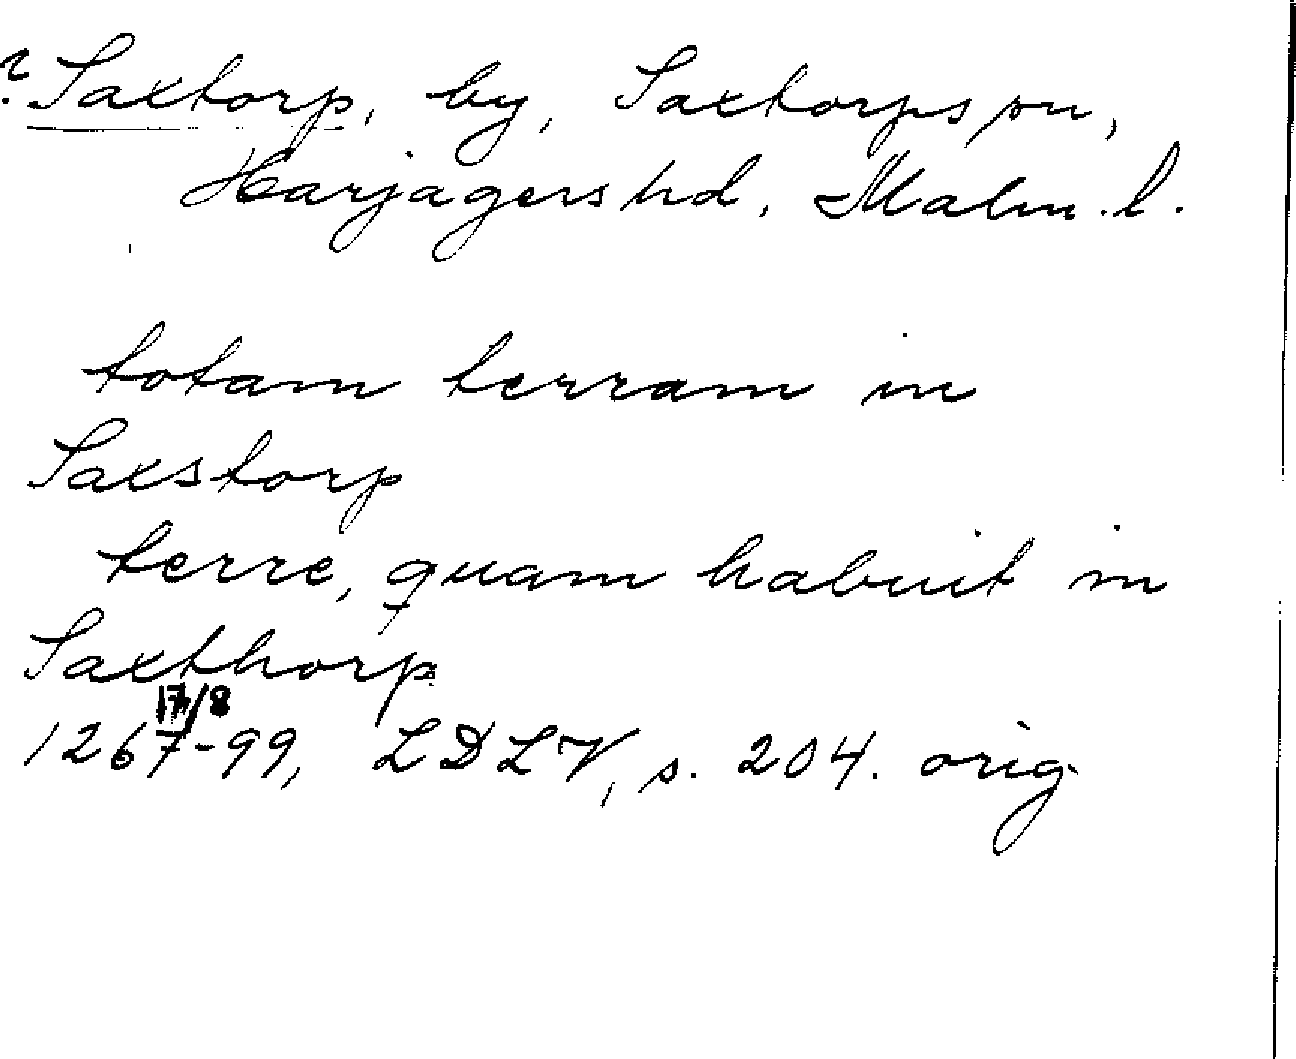 ? Saxtorp, by, Saxtorps sn,
Harjagers hd, Malm. l.
totam terram in
Saxstorp
terre, quam habuit in
Saxthorp
17/8
1267-99, LDLV, s. 204. orig.